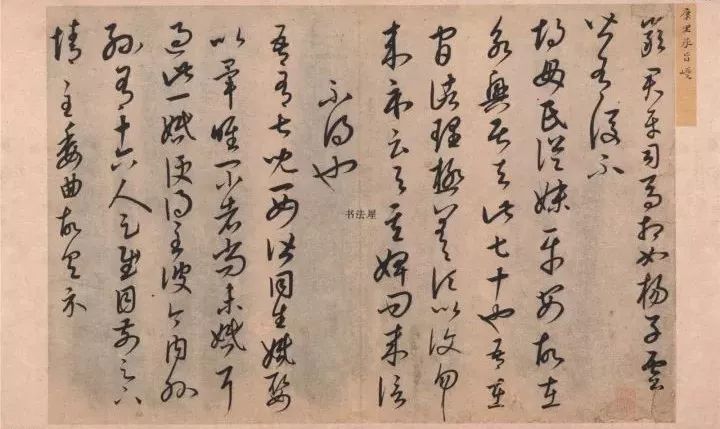 康里承旨巙
嚴君平司馬相如楊子雲
皆有後不
胡毋氏從妹平安故在
永興居去此七十也吾在
官諸理極差頃比復勿
來示云與其婢問來信
不得也
吾有七兒一女皆同生婚娶
以畢唯一小者尚未婚耳
過此一婚便得至彼今內外
孫有十六人足慰目前足下
情至委曲故具示
书法屋